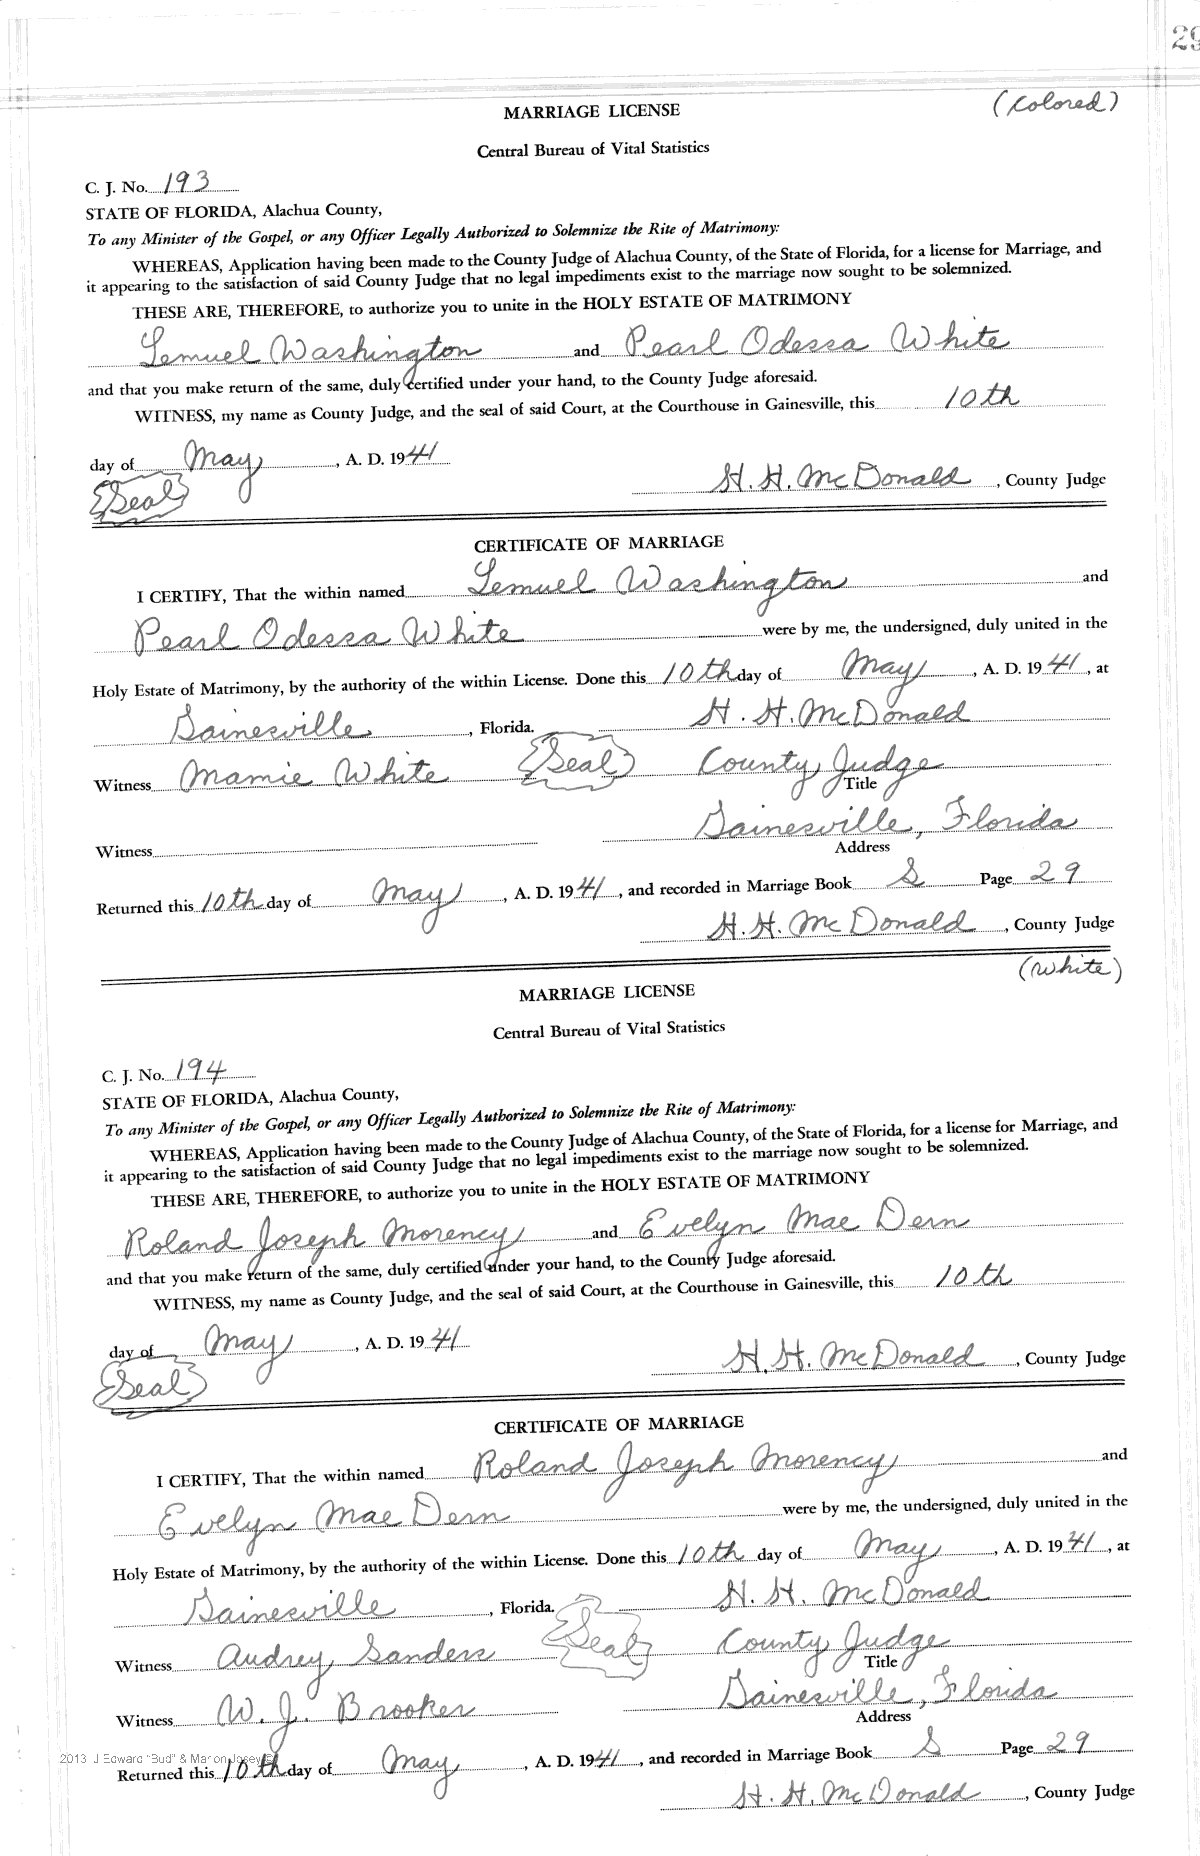 29
MARRIAGE LICENSE (Colored)
Central Bureau of Vital Statistics
C. J. No. 193
STATE OF FLORIDA, Alachua County,
To any Minister of the Gospel, or any Officer Legally Authorized to Solemnize the Rite of Matrimony:
WHEREAS, Application having been made to the County Judge of Alachua County, of the State of Florida, for a license for Marriage, and
it appearing to the satisfaction of said County Judge that no legal impediments exist to the marriage now sought to be solemnized.
THESE ARE, THEREFORE, to authorize you to unite in the HOLY ESTATE OF MATRIMONY
Lemuel Washington and Pearl Odessa White
and that you make return of the same, duly certified under your hand, to the County Judge aforesaid.
WITNESS, my name as County Judge, and the seal of said Court, at the Courthouse in Gainesville, this 10th
day of May, A. D. 1941
{Seal} H. H. McDonald, County Judge
CERTIFICATE OF MARRIAGE
I CERTIFY, That the within named Lemuel Washington and
Pearl Odessa White were by me, the undersigned, duly united in the
Holy Estate of Matrimony, by the authority of the within License. Done this 10th day of May, A. D. 1941, at
Gainesville, Florida. H. H. McDonald
Witness Mamie White {Seal} County Judge
Title
Gainesville, Florida
Witness Address
Returned this 10th day of May, A. D. 1941, and recorded in Marriage Book S Page 29
H. H. McDonald, County Judge
(White)
MARRIAGE LICENSE
Central Bureau of Vital Statistics
C. J. No. 194
STATE OF FLORIDA, Alachua County,
To any Minister of the Gospel, or any Officer Legally Authorized to Solemnize the Rite of Matrimony:
WHEREAS, Application having been made to the County Judge of Alachua County, of the State of Florida, for a license for Marriage, and
it appearing to the satisfaction of said County Judge that no legal impediments exist to the marriage now sought to be solemnized.
THESE ARE, THEREFORE, to authorize you to unite in the HOLY ESTATE OF MATRIMONY
Roland Joseph Morency and Evelyn Mae Dern
and that you make return of the same, duly certified under your hand, to the County Judge aforesaid.
WITNESS, my name as County Judge, and the seal of said Court, at the Courthouse in Gainesville, this 10th
day of May, A. D. 1941
{Seal} H. H. McDonald, County Judge
CERTIFICATE OF MARRIAGE
I CERTIFY, That the within named Roland Joseph Morency and
Evelyn Mae Dern were by me, the undersigned, duly united in the
Holy Estate of Matrimony, by the authority of the within License. Done this 10th day of May, A. D. 1941, at
Gainesville, Florida. H. H. McDonald
Witness Audrey Sanders {Seal} County Judge
Title
Witness W. J. Brooker Gainesville, Florida
Address
2013 J Edward "Bud" & Marion Josey ©
Returned this 10th day of May, A. D. 1941, and recorded in Marriage Book S Page 29
H. H. McDonald, County Judge